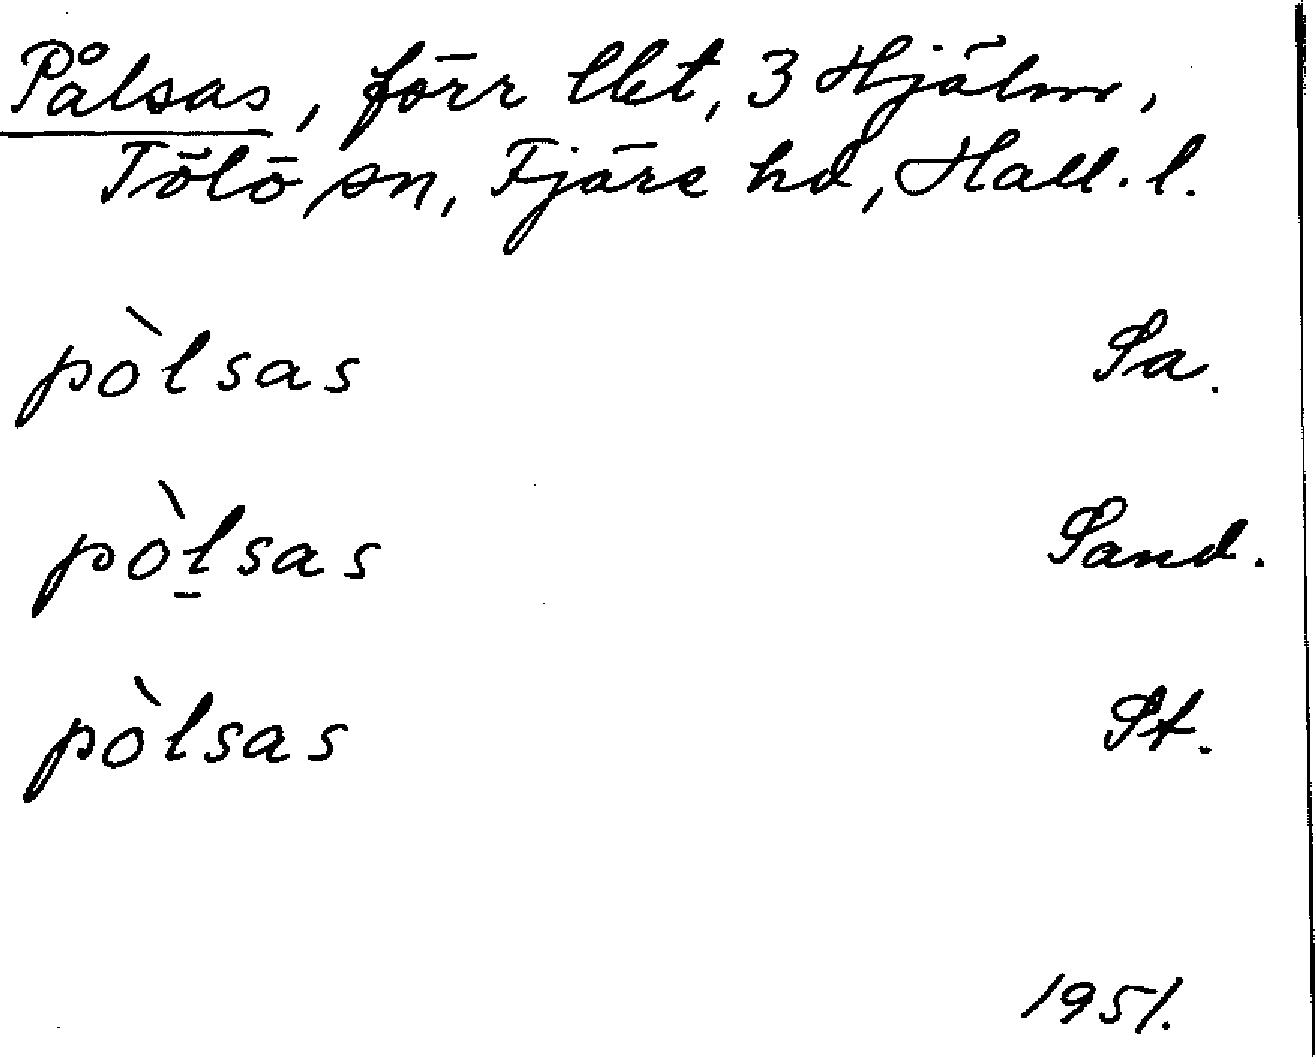 Pålsas, förr lht, 3 Hjälm,
Tölö sn, Fjäre hd, Hall. l.
pòlsas Sa.
pòlsas Sand.
pòlsas St.
1951.